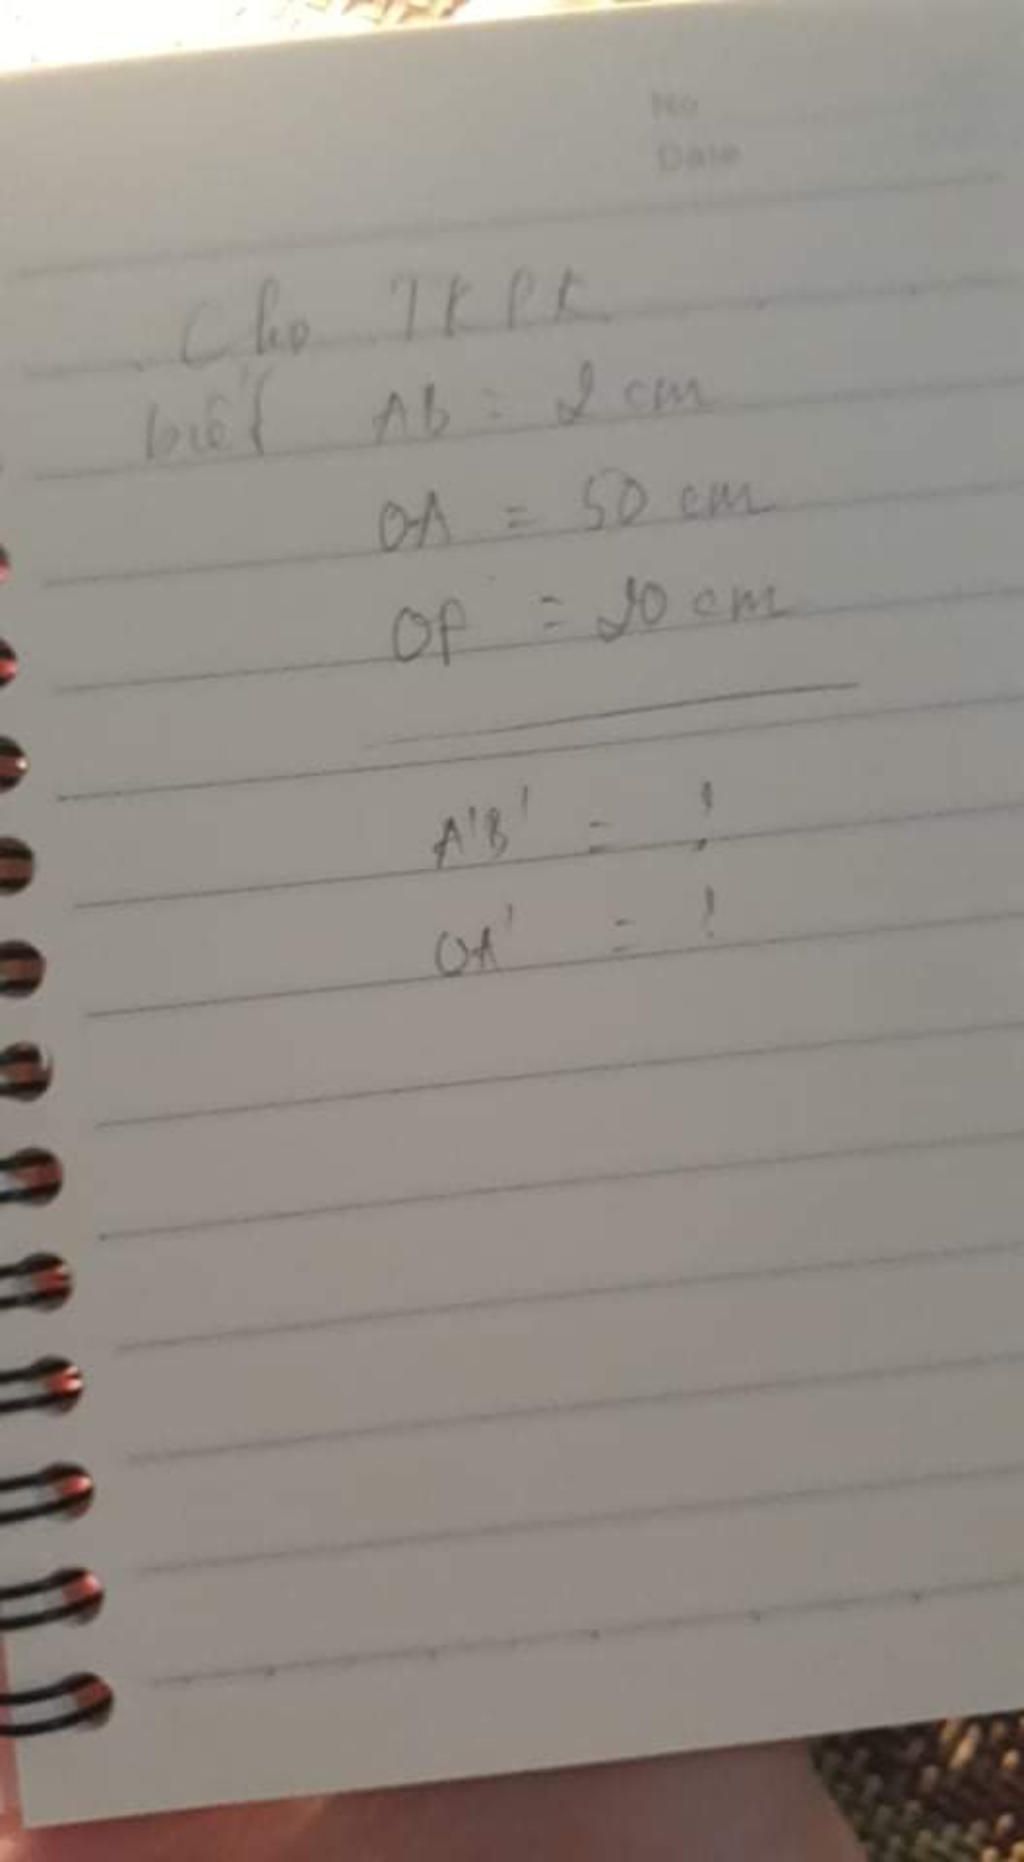 No
Date
Cho TKPK
biết AB = 2 cm
OA = 50 cm
OF = 20 cm
A'B' = ?
OA' = ?